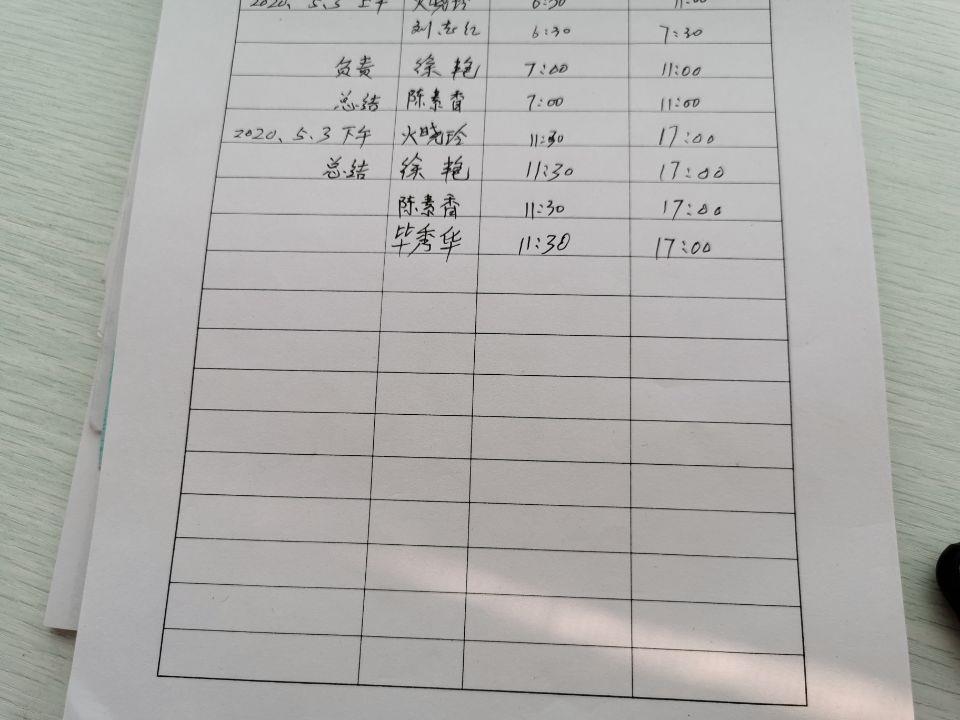 2020、5.3 上午 火晓玲 6:30 11:00
刘志红 6:30 7:30
负责 徐艳 7:00 11:00
总结 陈素香 7:00 11:00
2020、5.3 下午 火晓玲 11:30 17:00
总结 徐艳 11:30 17:00
陈素香 11:30 17:00
毕秀华 11:30 17:00